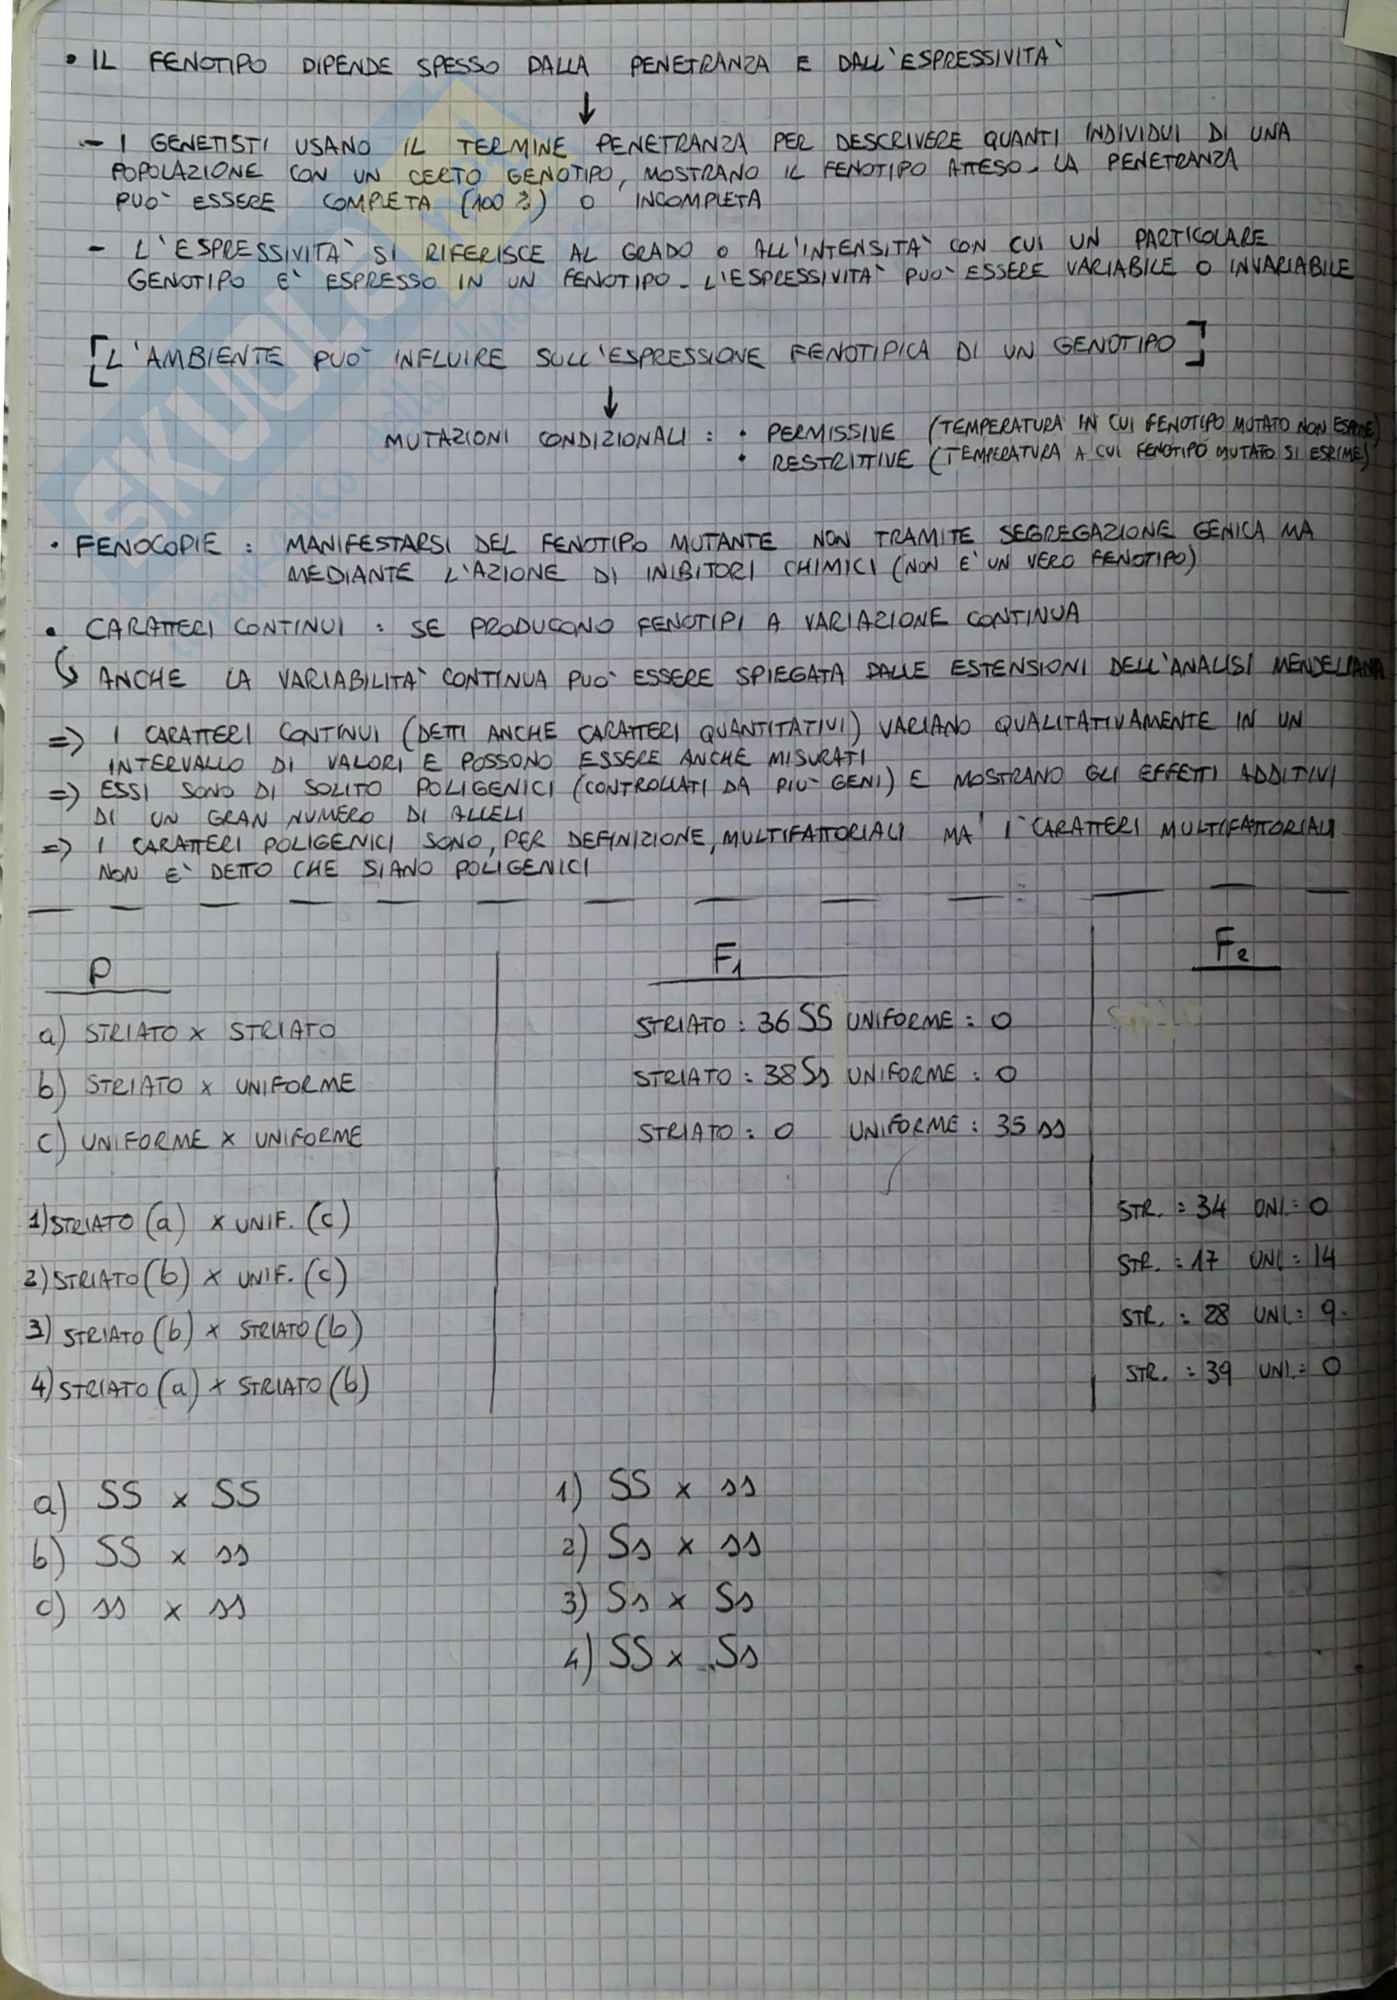 • IL FENOTIPO DIPENDE SPESSO DALLA PENETRANZA E DALL'ESPRESSIVITA'
↓
- I GENETISTI USANO IL TERMINE PENETRANZA PER DESCRIVERE QUANTI INDIVIDUI DI UNA
POPOLAZIONE CON UN CERTO GENOTIPO, MOSTRANO IL FENOTIPO ATTESO. LA PENETRANZA
PUO' ESSERE COMPLETA (100 %) O INCOMPLETA
- L'ESPRESSIVITA' SI RIFERISCE AL GRADO O ALL'INTENSITA' CON CUI UN PARTICOLARE
GENOTIPO E' ESPRESSO IN UN FENOTIPO. L'ESPRESSIVITA' PUO' ESSERE VARIABILE O INVARIABILE
[L'AMBIENTE PUO' INFLUIRE SULL'ESPRESSIONE FENOTIPICA DI UN GENOTIPO]
↓
MUTAZIONI CONDIZIONALI : • PERMISSIVE (TEMPERATURA IN CUI FENOTIPO MUTATO NON ESPRIME)
• RESTRITTIVE (TEMPERATURA A CUI FENOTIPO MUTATO SI ESRIME)
• FENOCOPIE : MANIFESTARSI DEL FENOTIPO MUTANTE NON TRAMITE SEGREGAZIONE GENICA MA
MEDIANTE L'AZIONE DI INIBITORI CHIMICI (NON E' UN VERO FENOTIPO)
• CARATTERI CONTINUI : SE PRODUCONO FENOTIPI A VARIAZIONE CONTINUA
↳ ANCHE LA VARIABILITA' CONTINUA PUO' ESSERE SPIEGATA DALLE ESTENSIONI DELL'ANALISI MENDELIANA
=> I CARATTERI CONTINUI (DETTI ANCHE CARATTERI QUANTITATIVI) VARIANO QUALITATIVAMENTE IN UN
INTERVALLO DI VALORI E POSSONO ESSERE ANCHE MISURATI
=> ESSI SONO DI SOLITO POLIGENICI (CONTROLLATI DA PIU' GENI) E MOSTRANO GLI EFFETTI ADDITIVI
DI UN GRAN NUMERO DI ALLELI
=> I CARATTERI POLIGENICI SONO, PER DEFINIZIONE, MULTIFATTORIALI MA' I CARATTERI MULTIFATTORIALI
NON E' DETTO CHE SIANO POLIGENICI
P F1 F2
a) STRIATO x STRIATO STRIATO : 36 SS UNIFORME : 0
b) STRIATO x UNIFORME STRIATO : 38 Ss UNIFORME : 0
c) UNIFORME x UNIFORME STRIATO : 0 UNIFORME : 35 ss
1) STRIATO (a) x UNIF. (c) STR. : 34 UNI : 0
2) STRIATO (b) x UNIF. (c) STR. : 17 UNI : 14
3) STRIATO (b) x STRIATO (b) STR. : 28 UNI : 9
4) STRIATO (a) x STRIATO (b) STR. : 39 UNI. : 0
a) SS x SS 1) SS x ss
b) SS x ss 2) Ss x ss
c) ss x ss 3) Ss x Ss
4) SS x Ss
SKUOLA